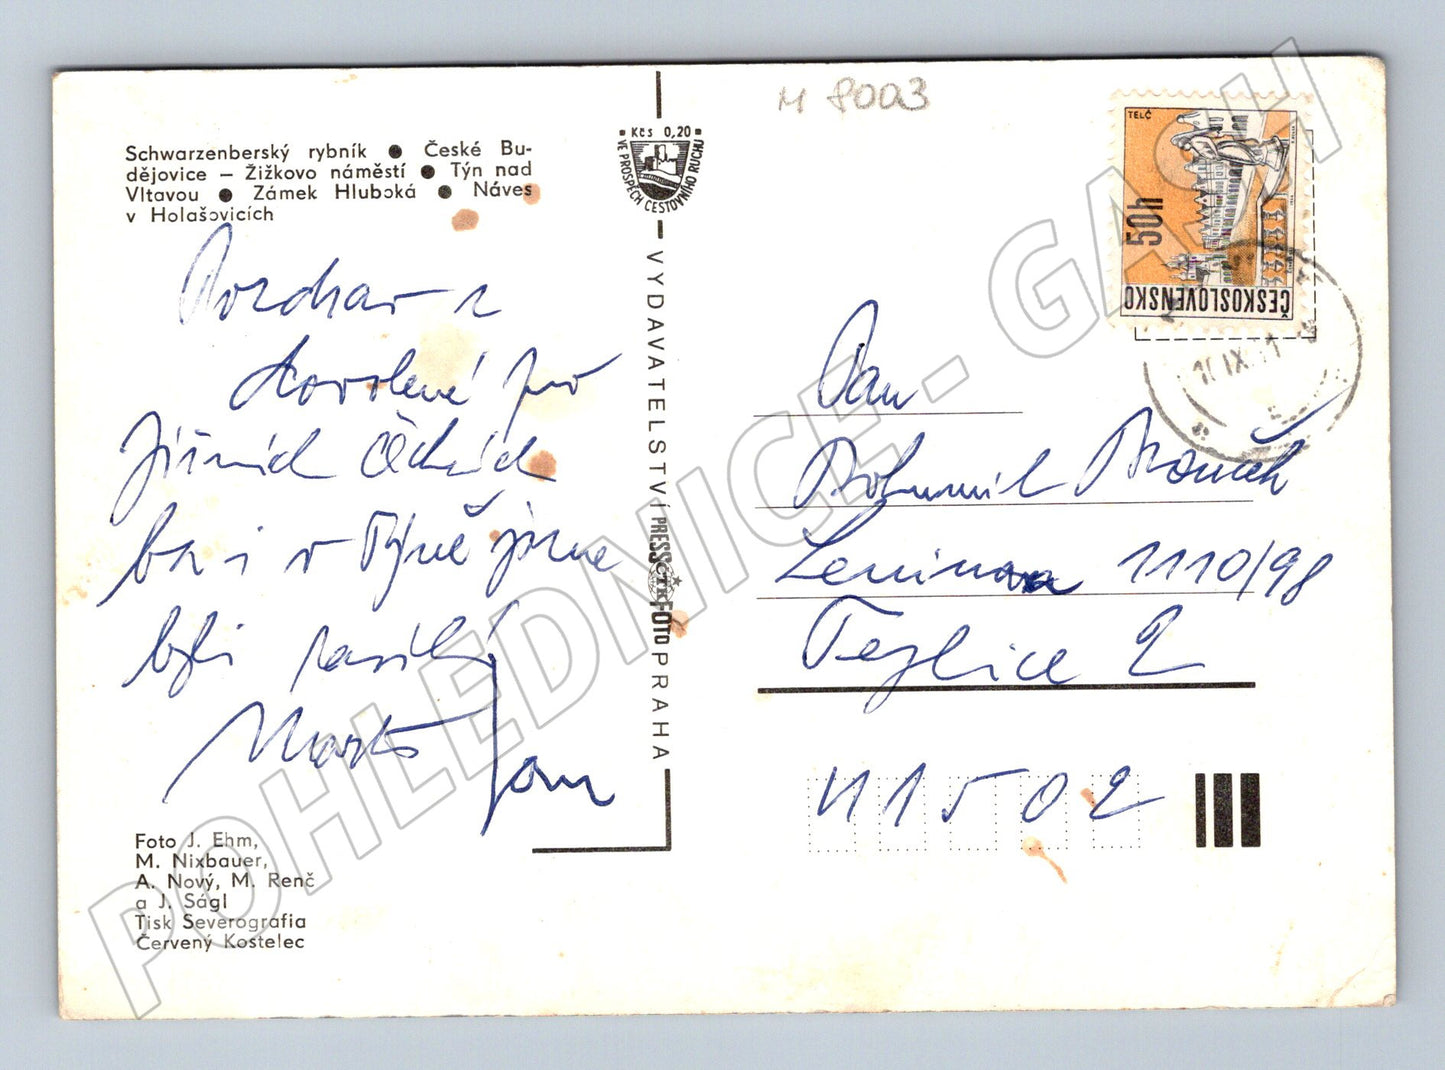 M 8003
Schwarzenberský rybník ● České Bu-
dějovice – Žižkovo náměstí ● Týn nad
Vltavou ● Zámek Hluboká ● Náves
v Holašovicích
Kčs 0,20
VE PROSPĚCH CESTOVNÍHO RUCHU
VYDAVATELSTVÍ PRESSFOTO PRAHA
ČTK
Pozdrav z
dovolené po
Jižních Čechách
ba i v Týně jsme
byli
Jan
Foto J. Ehm,
M. Nixbauer,
A. Nový, M. Renč
a J. Ságl
Tisk Severografia
Červený Kostelec
TELČ
50h
ČESKOSLOVENSKO
IX
Pan
Bohumil
Leninova 1110/98
Teplice 2
41502
POHLEDNICE - GASH